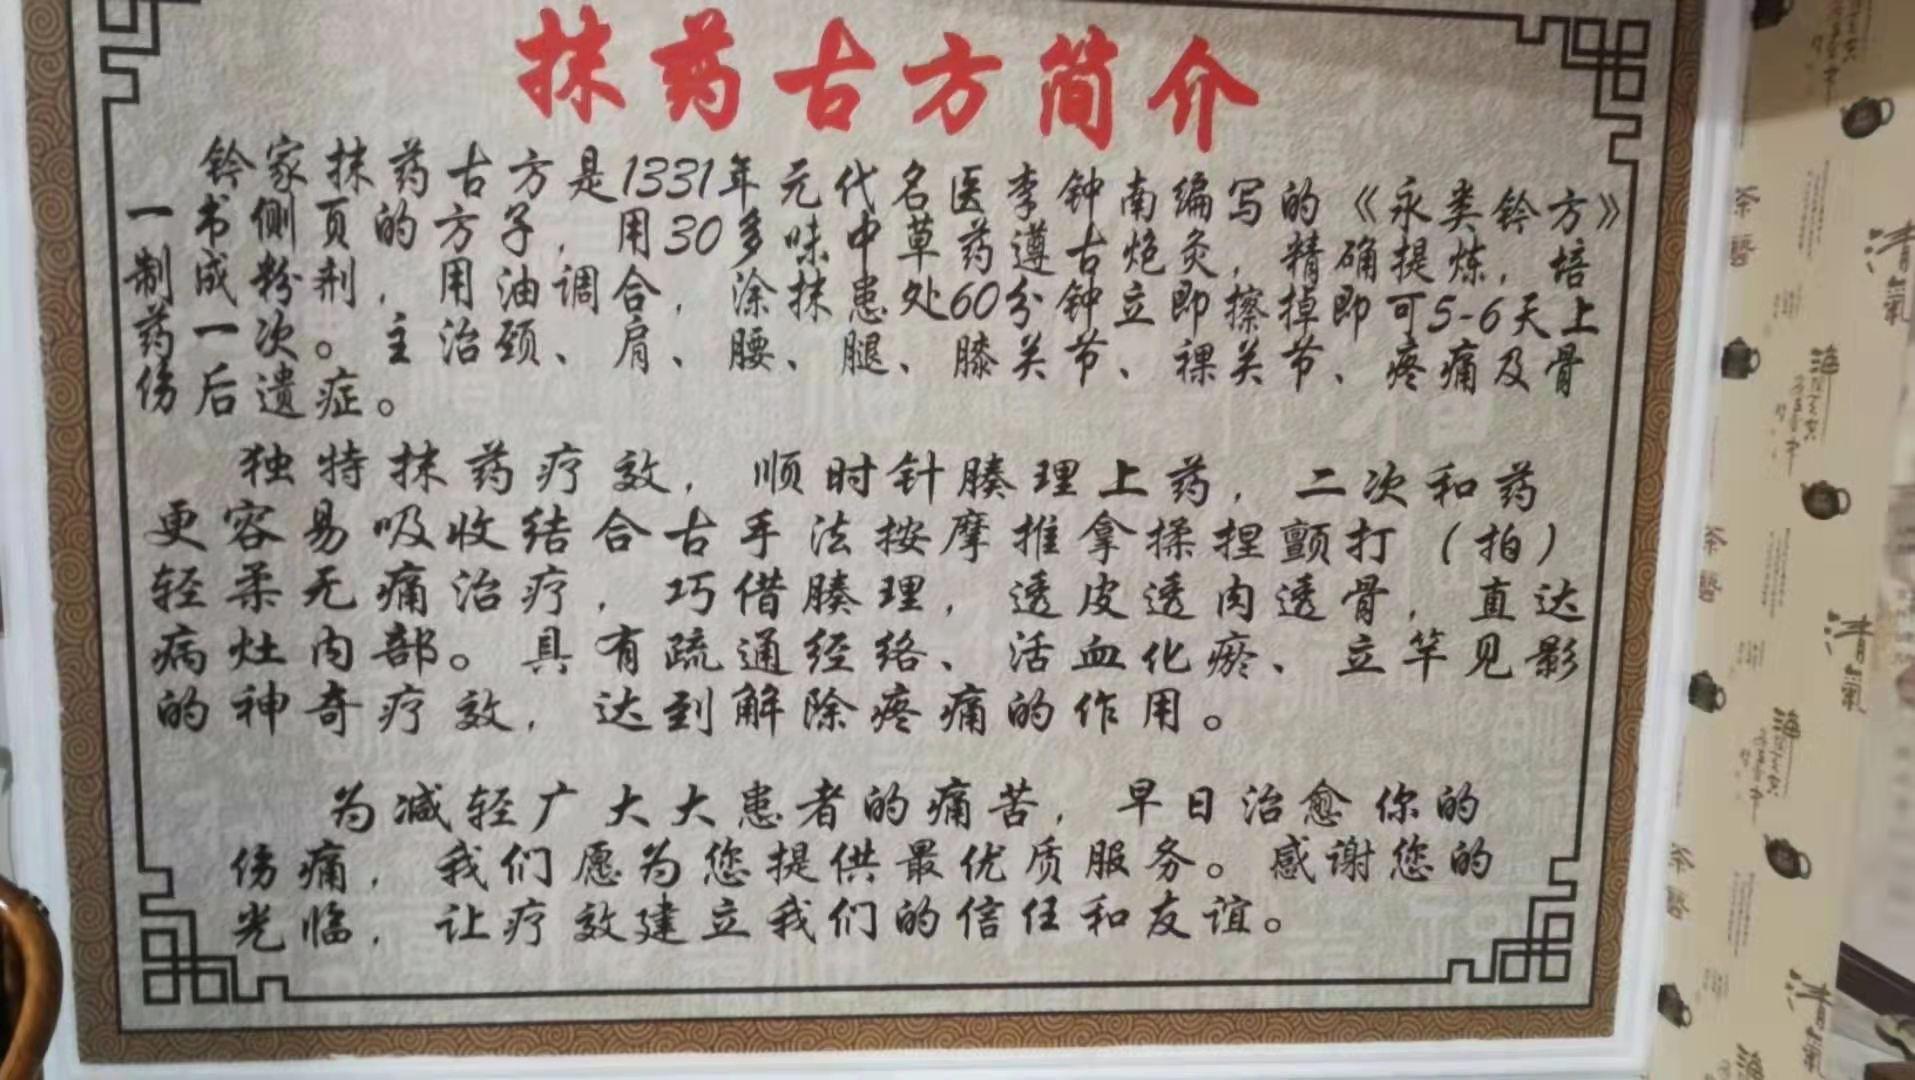 抹药古方简介
钤家抹药古方是1331年元代名医李钟南编写的《永类钤方》
一书侧页的方子，用30多味中草药遵古炮灸，精确提炼，培
制成粉剂，用油调合，涂抹患处60分钟立即擦掉即可5-6天上
药一次。主治颈、肩、腰、腿、膝关节、裸关节、疼痛及骨
伤后遗症。
独特抹药疗效，顺时针腠理上药，二次和药
更容易吸收结合古手法按摩推拿揉捏颤打（拍）
轻柔无痛治疗，巧借腠理，透皮透肉透骨，直达
病灶内部。具有疏通经络、活血化瘀、立竿见影
的神奇疗效，达到解除疼痛的作用。
为减轻广大大患者的痛苦，早日治愈你的
伤痛，我们愿为您提供最优质服务。感谢您的
光临，让疗效建立我们的信任和友谊。
茶
醫
清
氣
海
茶
醫
清
氣
海
茶
醫
清
氣
海